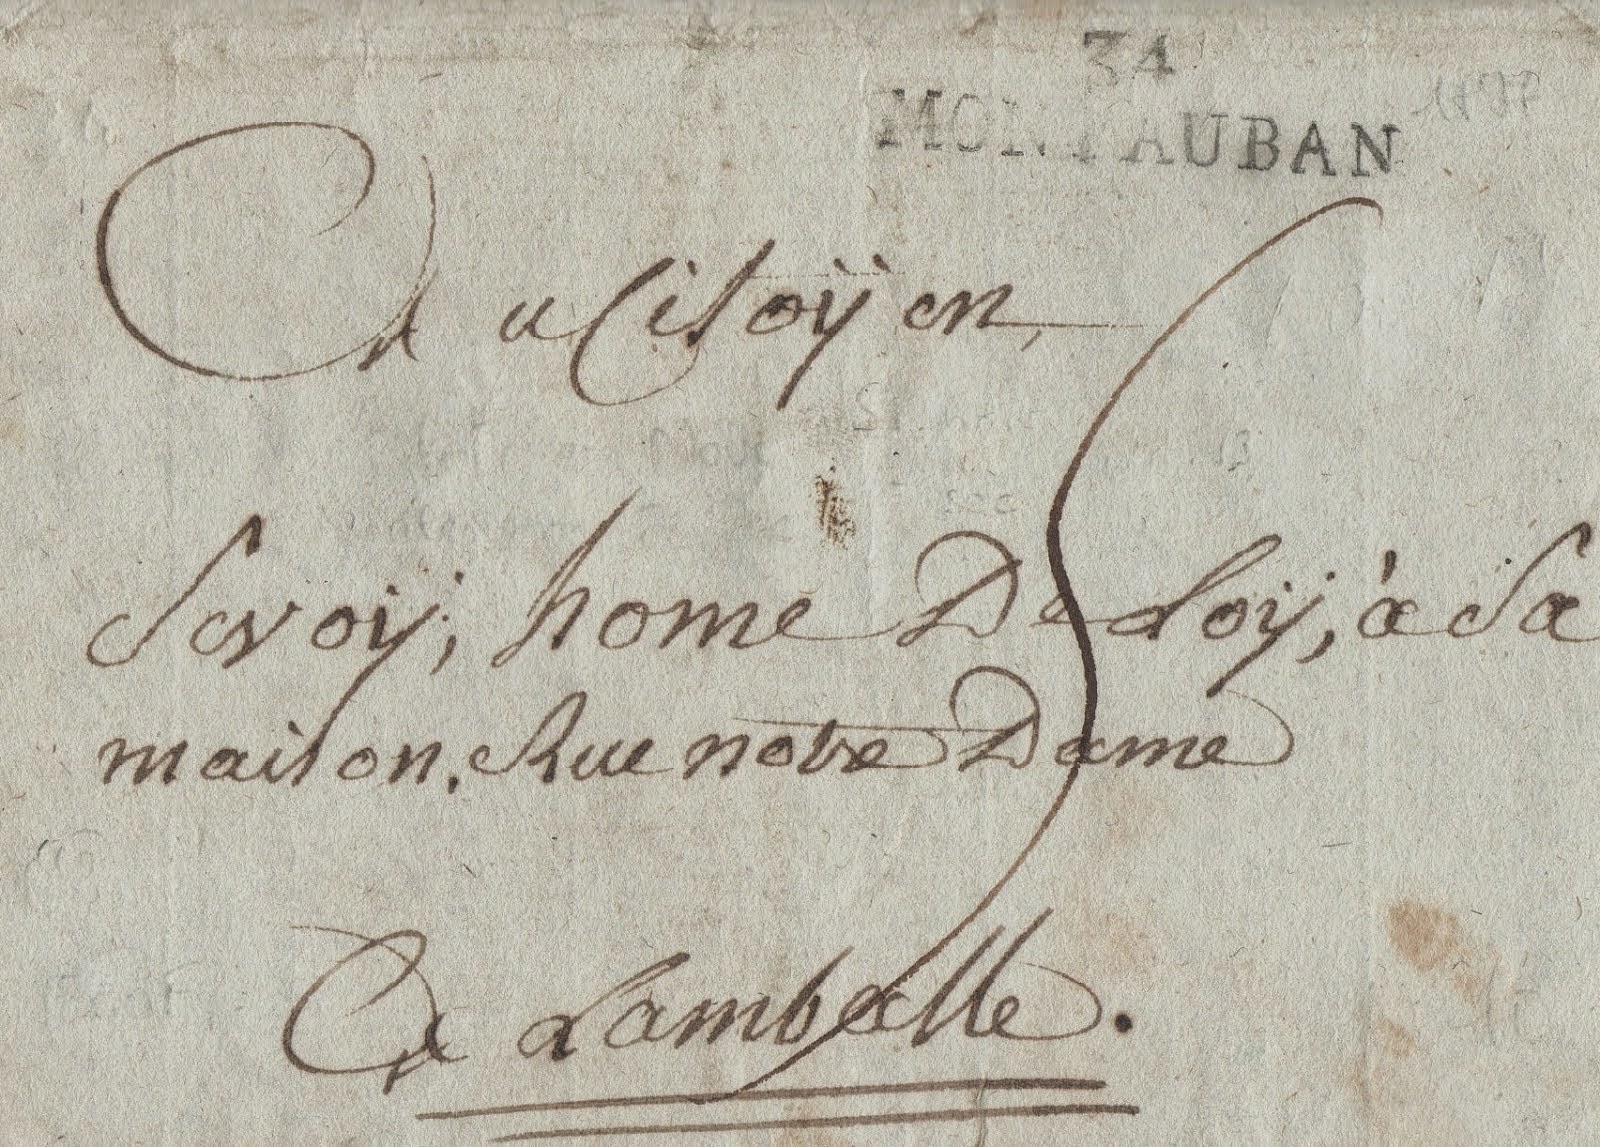 34
MONTAUBAN
Au Citoÿen,
Sevoÿ; home De Loÿ, à Sa
maison. Rue notre Dame
A Lamballe.